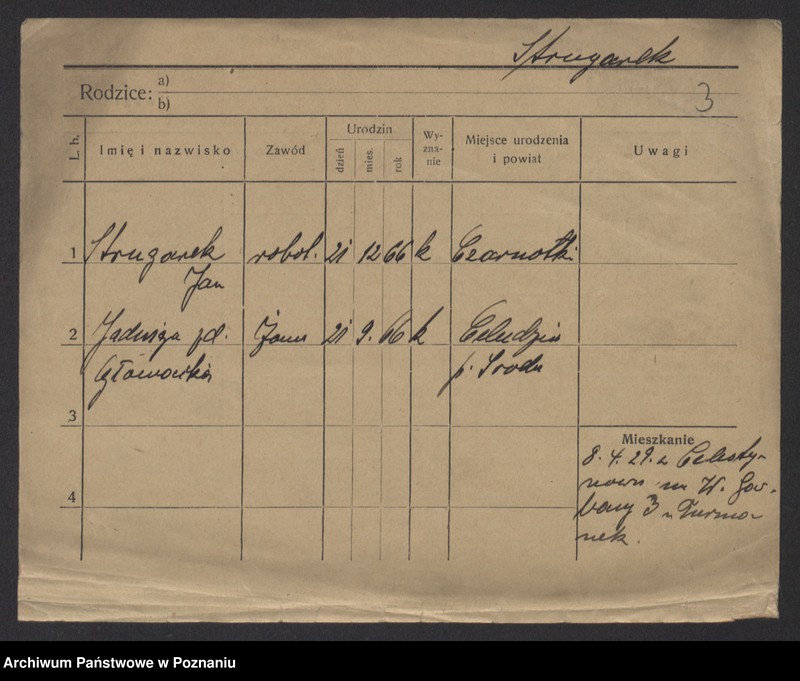 Strugarek
Rodzice: a)
b)
3
L. b.
Imię i nazwisko
Zawód
Urodzin
dzień
mies.
rok
Wy-
zna-
nie
Miejsce urodzenia
i powiat
Uwagi
1 Strugarek robot. 21 12 66 k
Jan
2 Jadwiga żona 21 9. 66 k
p. Środa
3
Mieszkanie
8. 4. 29. z Celesty-
nowa na W. Gar-
bary 3 u Furma-
nek.
4
Archiwum Państwowe w Poznaniu